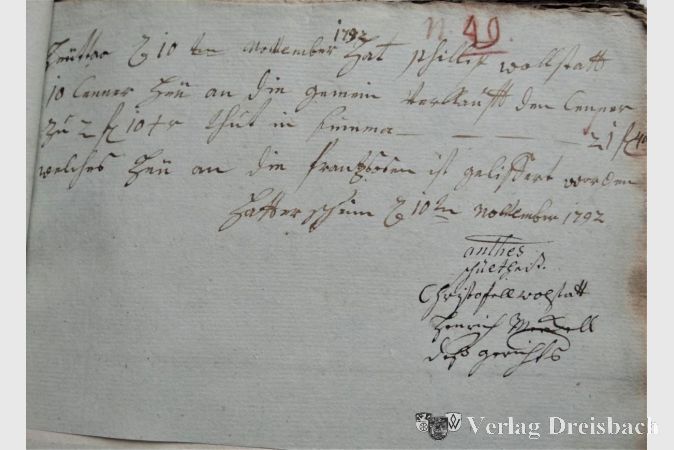 N. 40.
Heüttao D 10 ten November 1792 Hat Phillip Wollstatt
10 Cenner Heü an die gemein Verkaufft den Cenner
zu 2 fl 10 xr thut in summa — — — 21 fl 40
welches Heü an die frantzosen ist geliffert worden
Hatterscheim D 10 ten November 1792
anthes
schüetheiß
Christofell wollstatt
Henrich
deß gerichts
Verlag Dreisbach